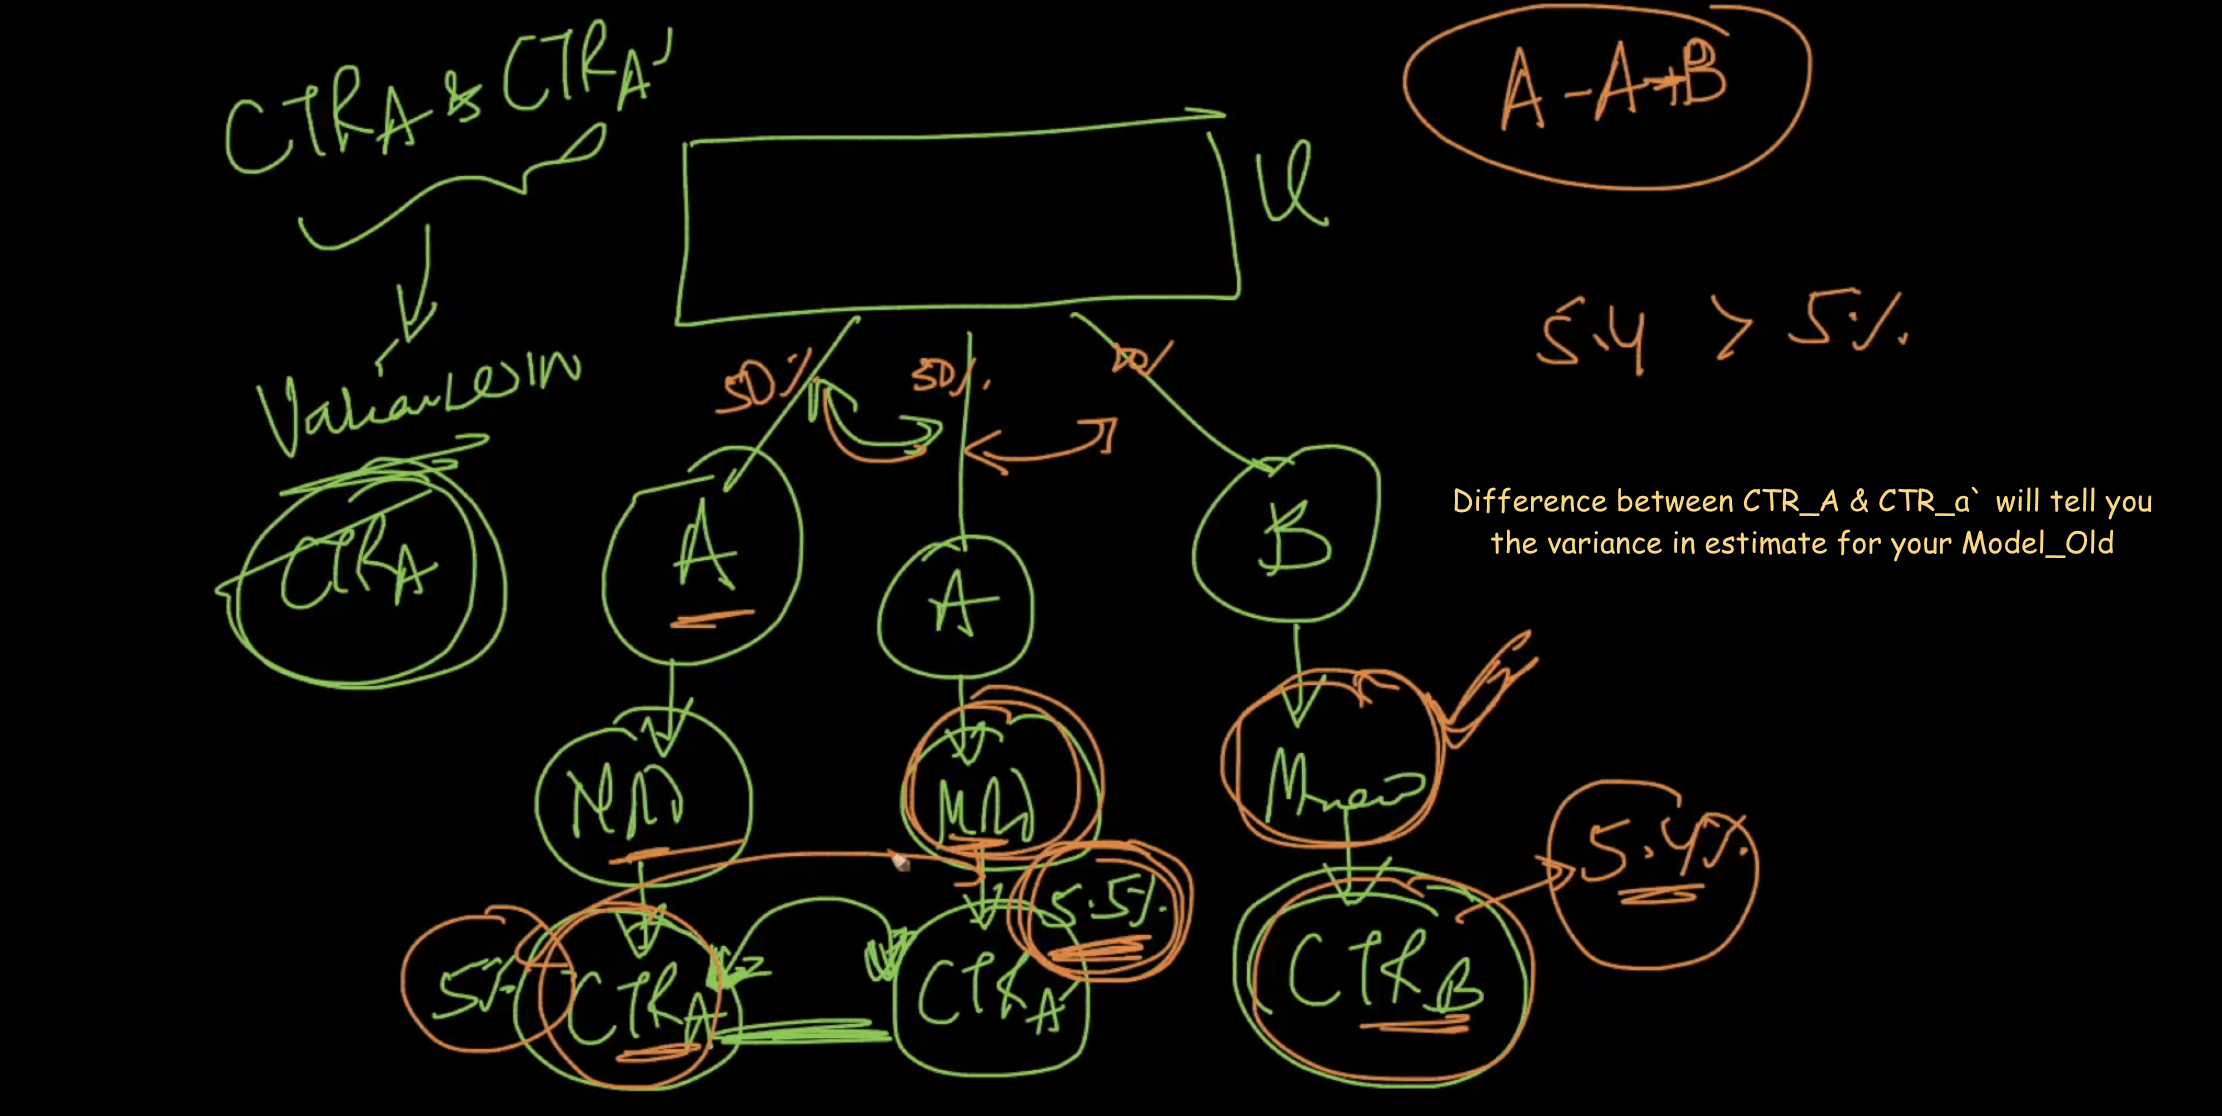 CTR_A & CTR_A'
A-A+B
U
5.4 > 5%
Variance in
50%
50%
CTR_A
A
A
B
Difference between CTR_A & CTR_a` will tell you
the variance in estimate for your Model_Old
Mnew
5.4%
5.5%
5%
CTR_A
CTR_A'
CTR_B